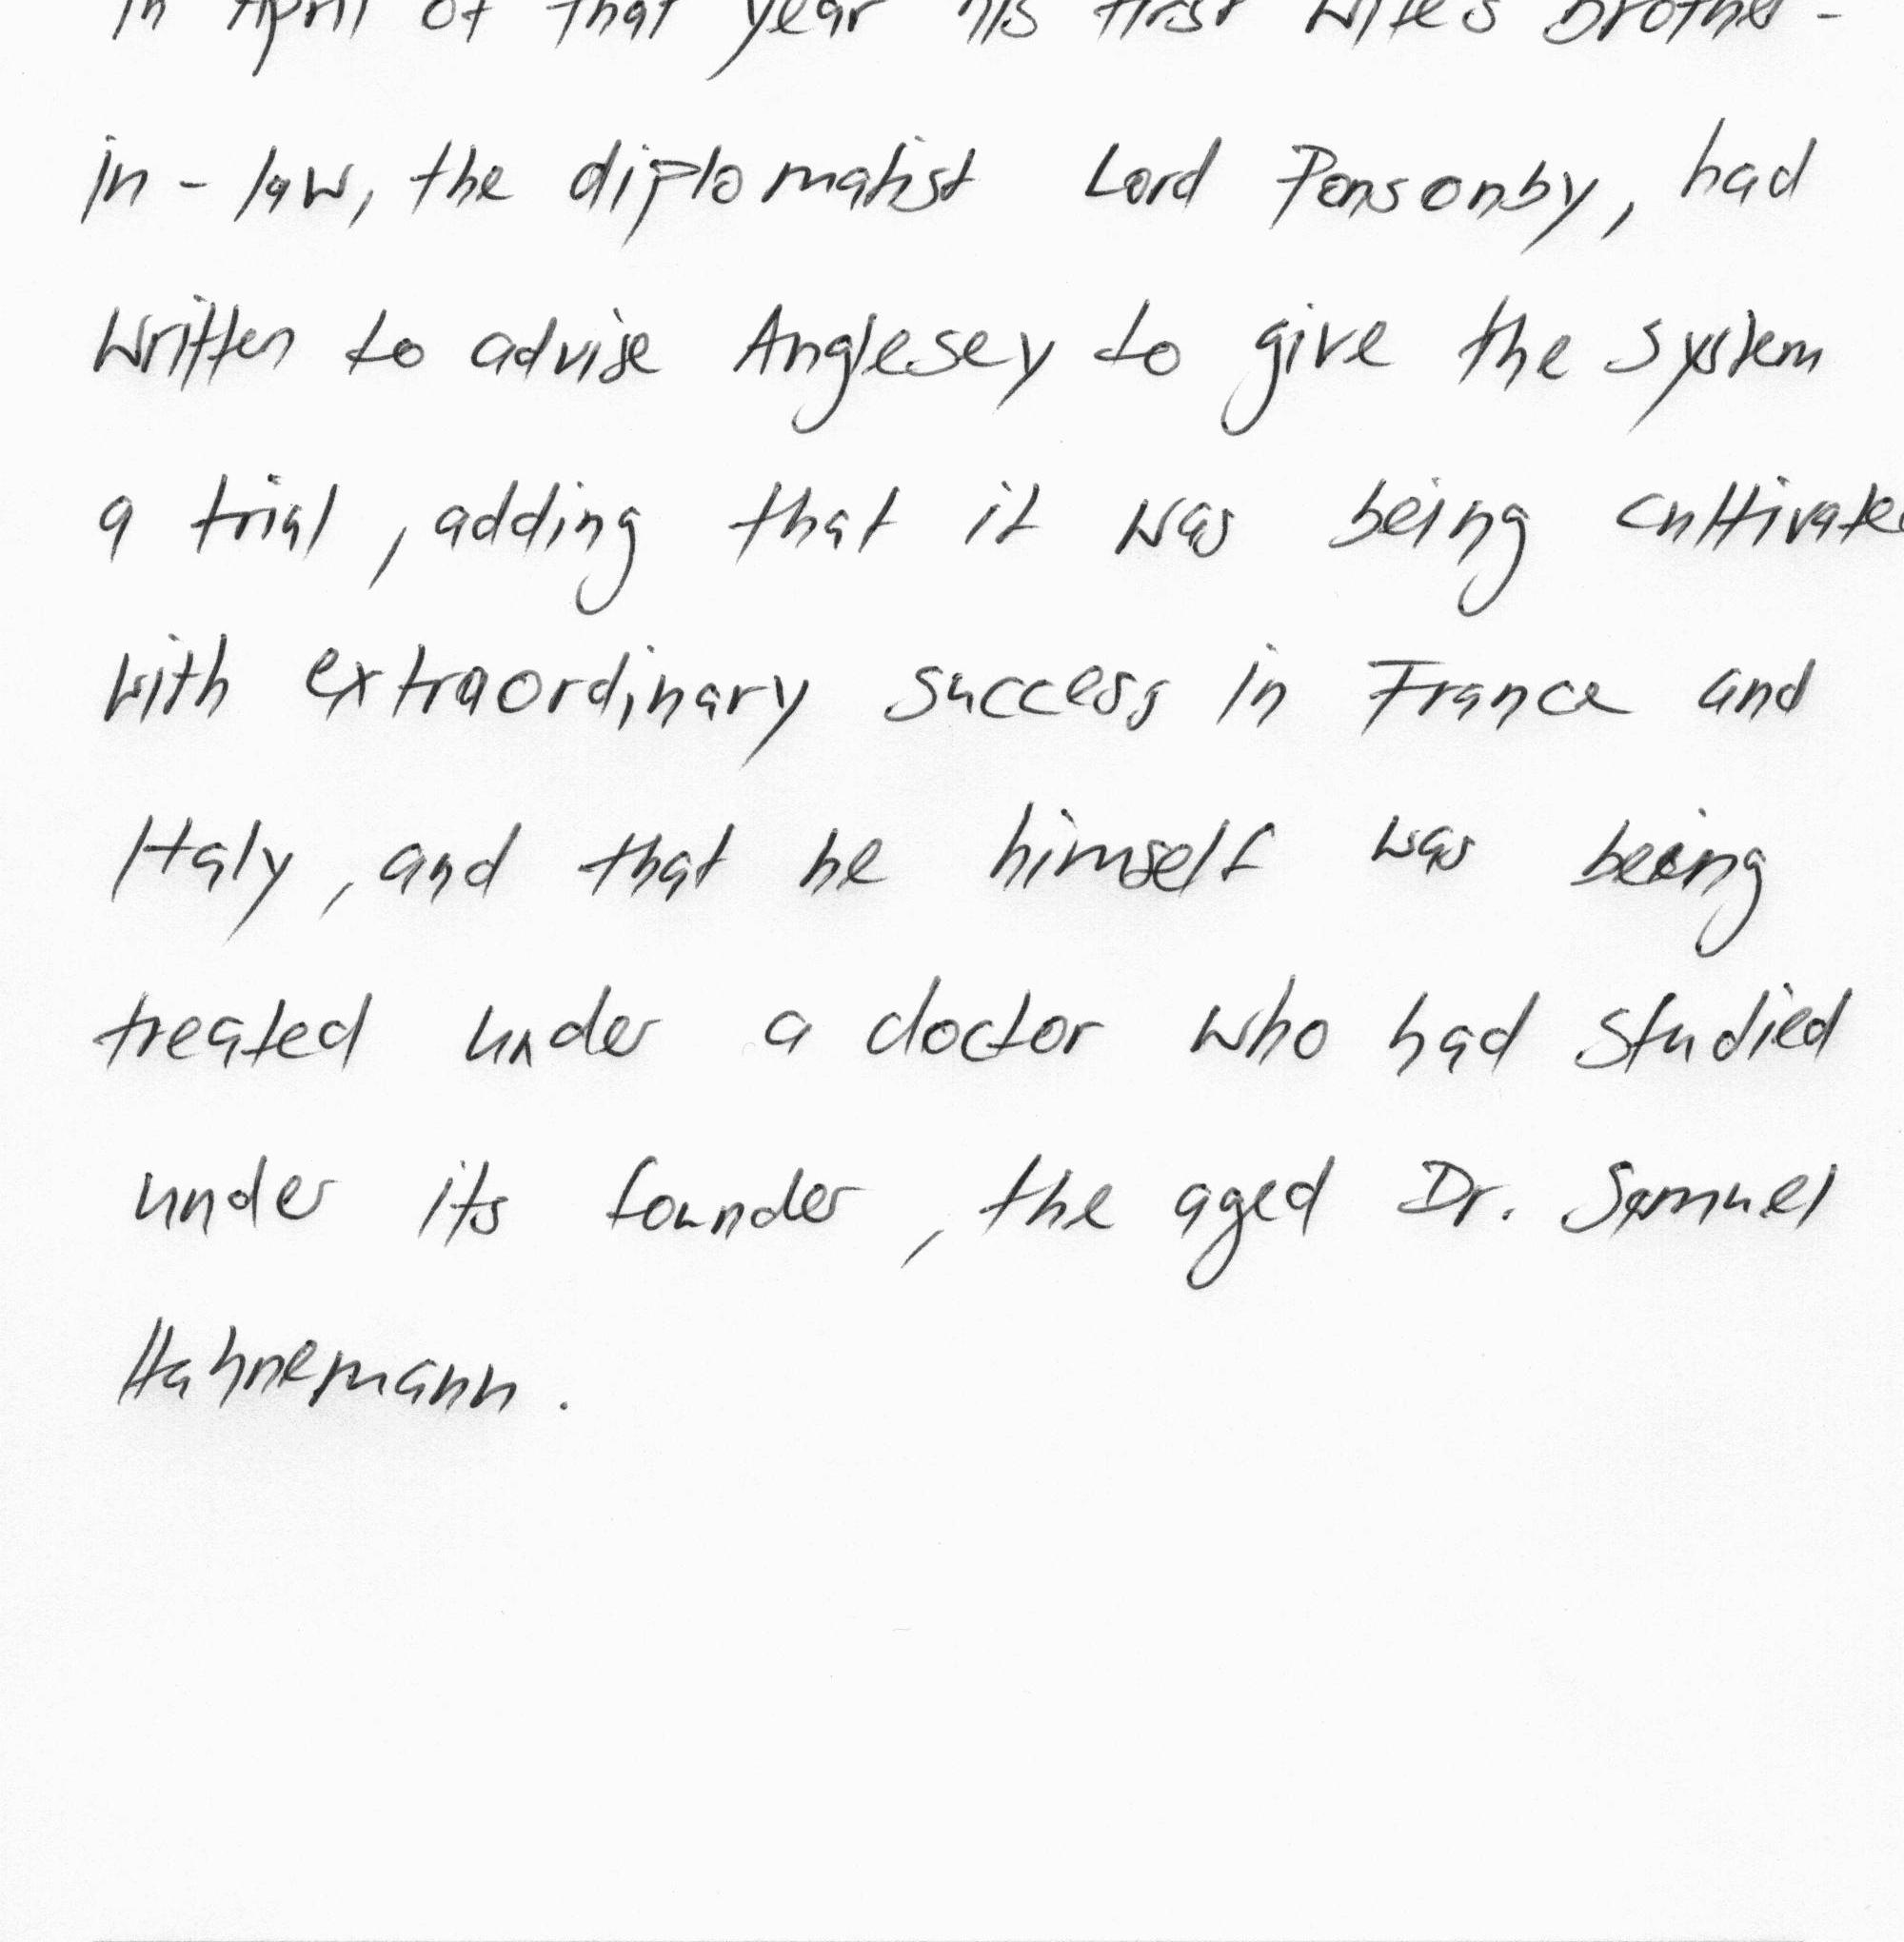 in April of that year his first wife's brother-
in-law, the diplomatist Lord Ponsonby, had
written to advise Anglesey to give the system
a trial, adding that it was being cultivated
with extraordinary success in France and
Italy, and that he himself was being
treated under a doctor who had studied
under its founder, the aged Dr. Samuel
Hahnemann.